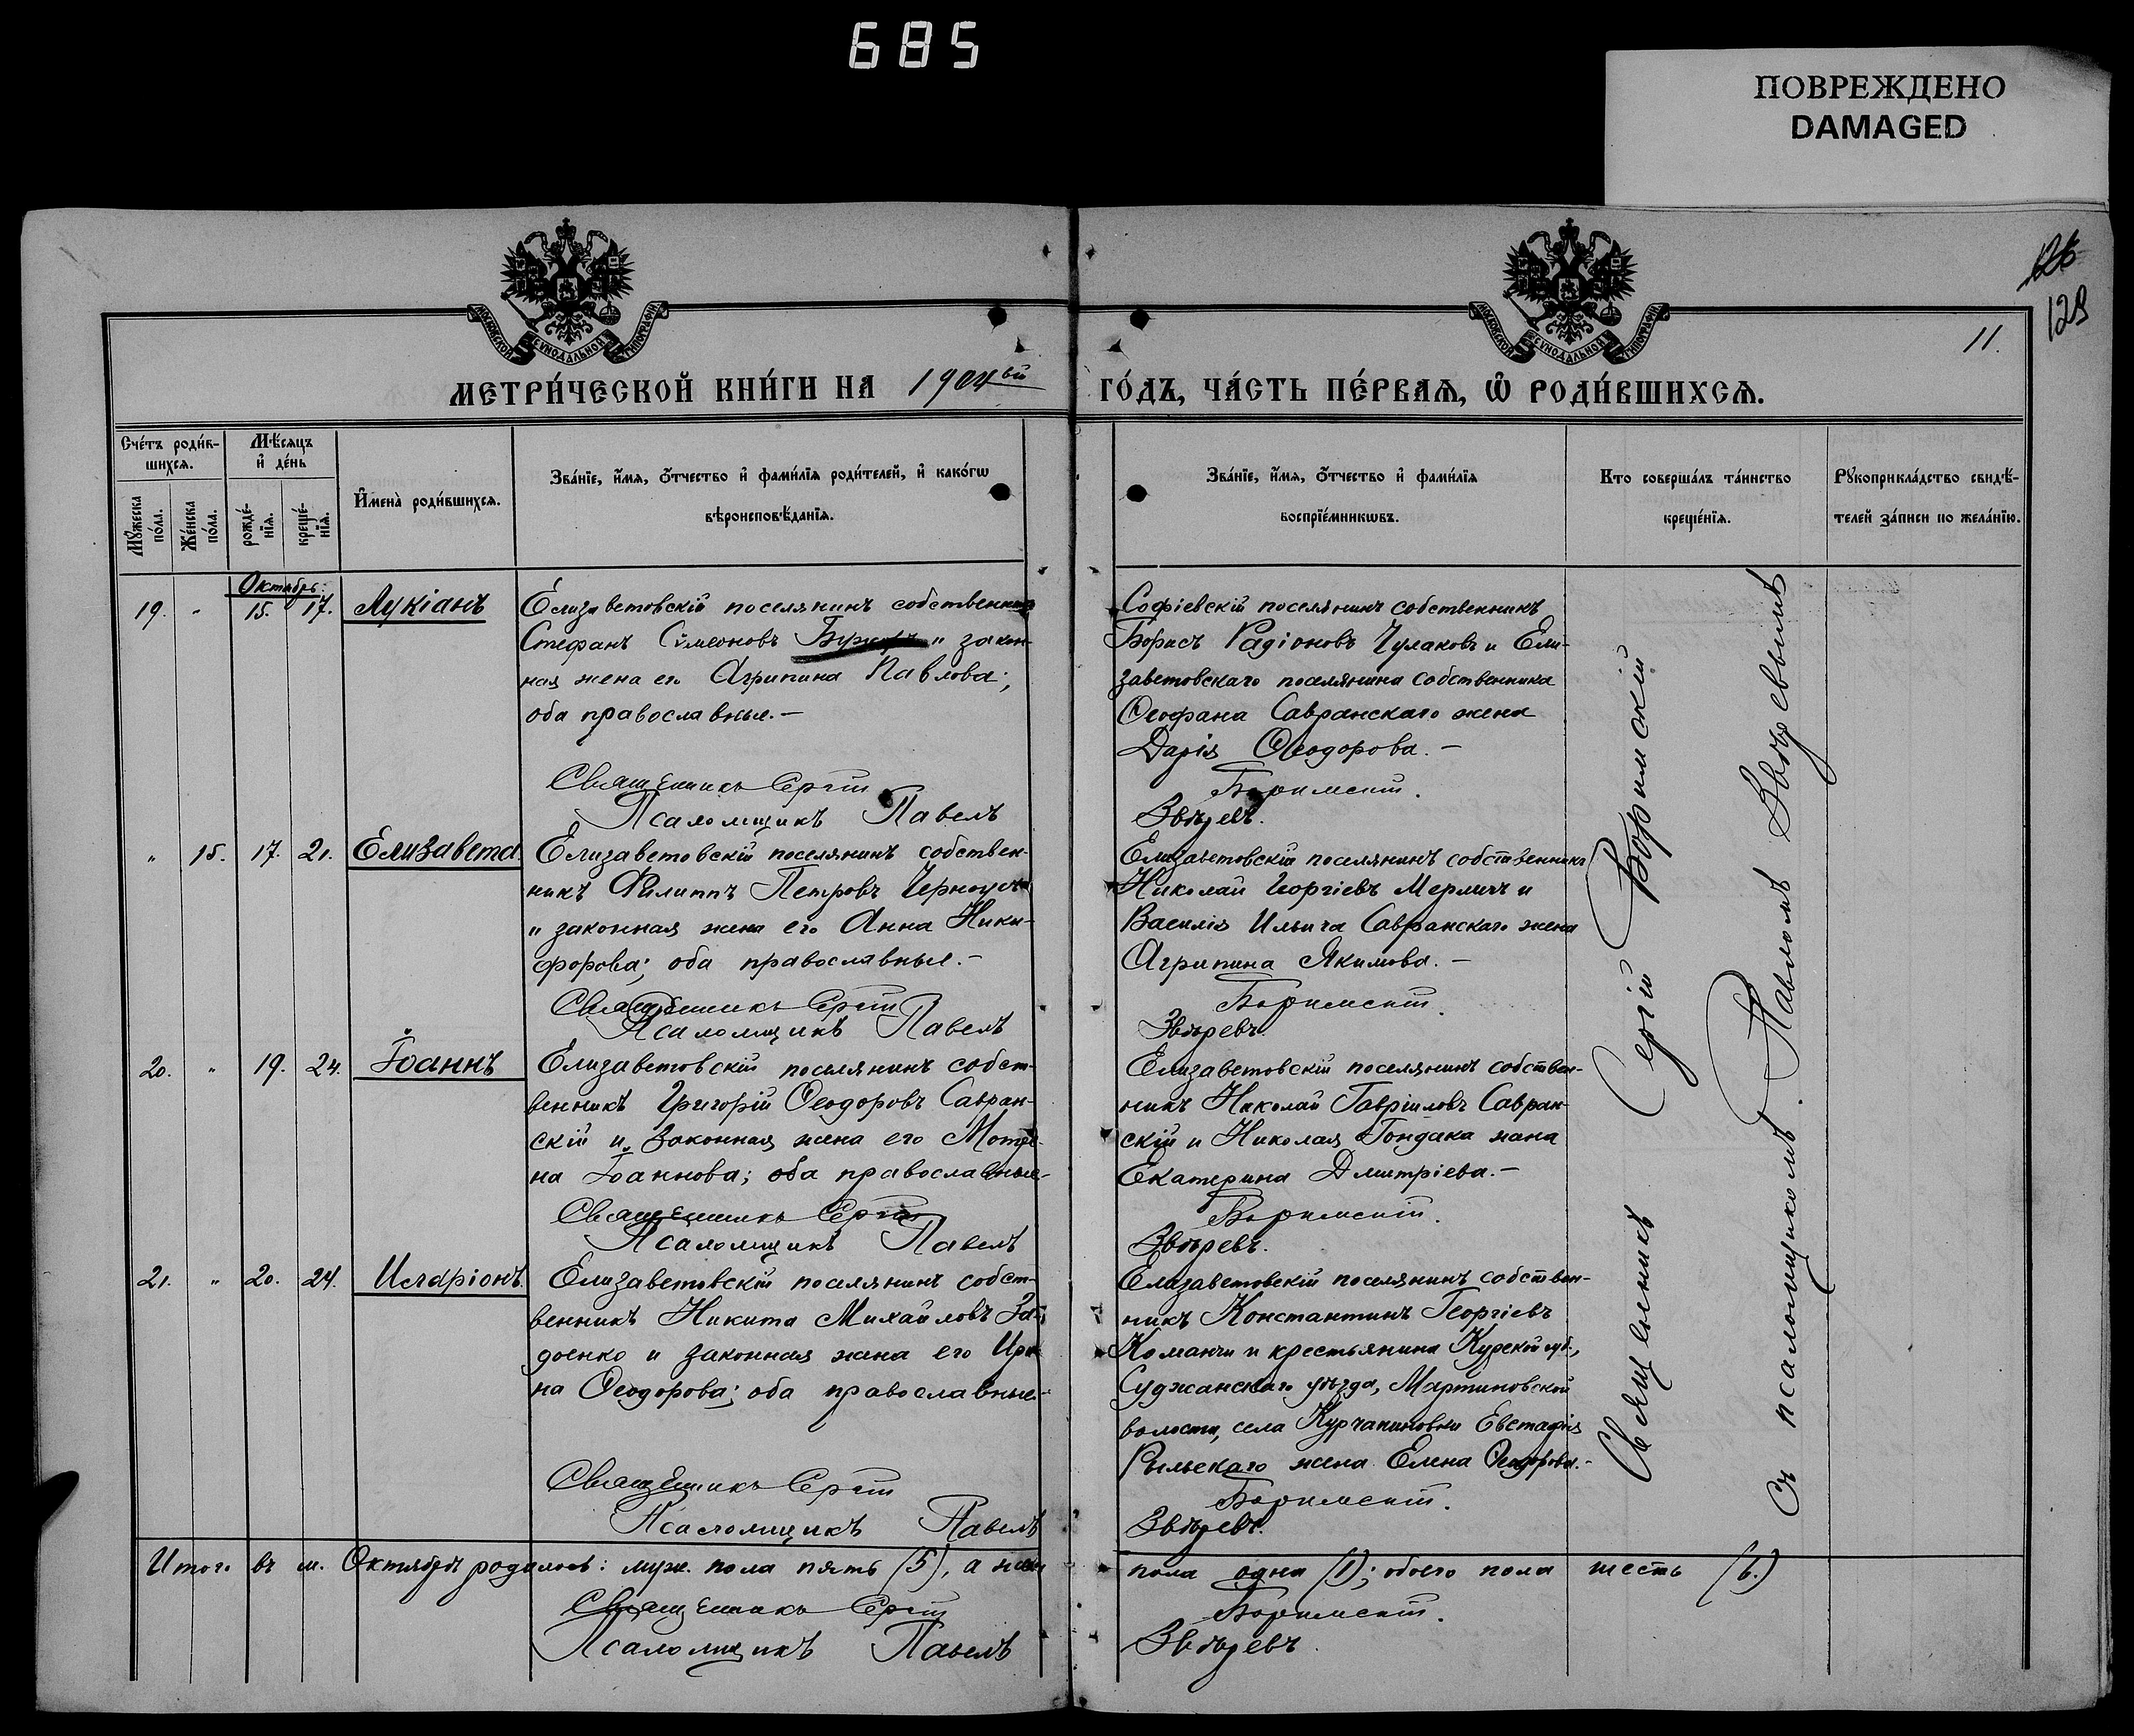 685
ПОВРЕЖДЕНО
DAMAGED
126
129
11.
МОСКОВСКОЙ СѴНОДАЛЬНОЙ ТИПОГРАФІИ
МОСКОВСКОЙ СѴНОДАЛЬНОЙ ТИПОГРАФІИ
МЕТРИ́ЧЕСКОЙ КНИ́ГИ НА 1904ый ГО́ДЪ, ЧА́СТЬ ПЕ́РВАѦ, Ѡ РОДИ́ВШИХСѦ.
Счéтъ роди́в-
шихсѧ.
Мѣ́сяцъ
и́ де́нь
Мꙋ́жеска по́ла.
Же́нска по́ла.
рожде́-
нїѧ.
креще́-
нїѧ.
И́мена̀ роди́вшихсѧ.
Зва́нїе, и́мѧ, о́тчество и́ фами́лїѧ роди́телей, и́ како́гѡ
вѣроисповѣ́данїѧ.
Зва́нїе, и́мѧ, о́тчество и́ фами́лїѧ
воспрїе́мникѡвъ.
Кто соверша́лъ та́инство
креще́нїѧ.
Рꙋкоприкла́дство свидѣ́-
телей за́писи по жела́нїю.
Октябрь:
19. " 15. 17. Лукіанъ
Елизаветовскій поселянинъ собственникъ
Стефанъ Сѵмеоновъ " закон-
ная жена его Агрипина Павлова;
оба православные.—
Священникъ Сергій
Псаломщикъ Павелъ
Софіевскій поселянинъ собственникъ
Борисъ Радіоновъ Чулаковъ и Ели-
заветовскаго поселянина собственника
Ѳеофана Савранскаго жена
Дарія Ѳеодорова.—
Боримскій.
Звѣревъ.
" 15. 17. 21. Елизавета
Елизаветовскій поселянинъ собствен-
никъ Филиппъ Петровъ
" законная жена его Анна Ники-
форова; оба православные.—
Священникъ Сергій
Псаломщикъ Павелъ
Елизаветовскій поселянинъ собственникъ
Николай Георгіевъ Мерличъ и
Василія Ильича Савранскаго жена
Агрипина Якимова.—
Боримскій.
Звѣревъ.
20. " 19. 24. Іоаннъ
Елизаветовскій поселянинъ собст-
венникъ Григорій Ѳеодоровъ Савран-
скій и законная жена его Мотро-
на Іоаннова; оба православные.
Священникъ Сергій
Псаломщикъ Павелъ
Елизаветовскій поселянинъ собствен-
никъ Николай Гавріиловъ Савран-
скій и Николая Гондака жена
Екатерина Дмитріева.—
Боримскій.
Звѣревъ.
21. " 20. 24. Иларіонъ
Елизаветовскій поселянинъ собст-
венникъ Никита Михайловъ За-
доенко и законная жена его Ири-
на Ѳеодорова; оба православные.
Священникъ Сергій
Псаломщикъ Павелъ
Елизаветовскій поселянинъ собствен-
никъ Константинъ Георгіевъ
Команчи и крестьянина Курской губ.,
Суджанскаго уѣзда, Мартиновской
волости, села Евстафія
Рыльскаго жена Елена Ѳеодорова.—
Боримскій.
Звѣревъ.
Священникъ Сергій Боримскій
Съ псаломщикомъ Павломъ Звѣревымъ
Итого въ м. Октябрѣ родилось: муж. пола пять (5), а жен. пола одна (1); обоего пола шесть (6.)
Священникъ Сергій Боримскій.
Псаломщикъ Павелъ Звѣревъ.